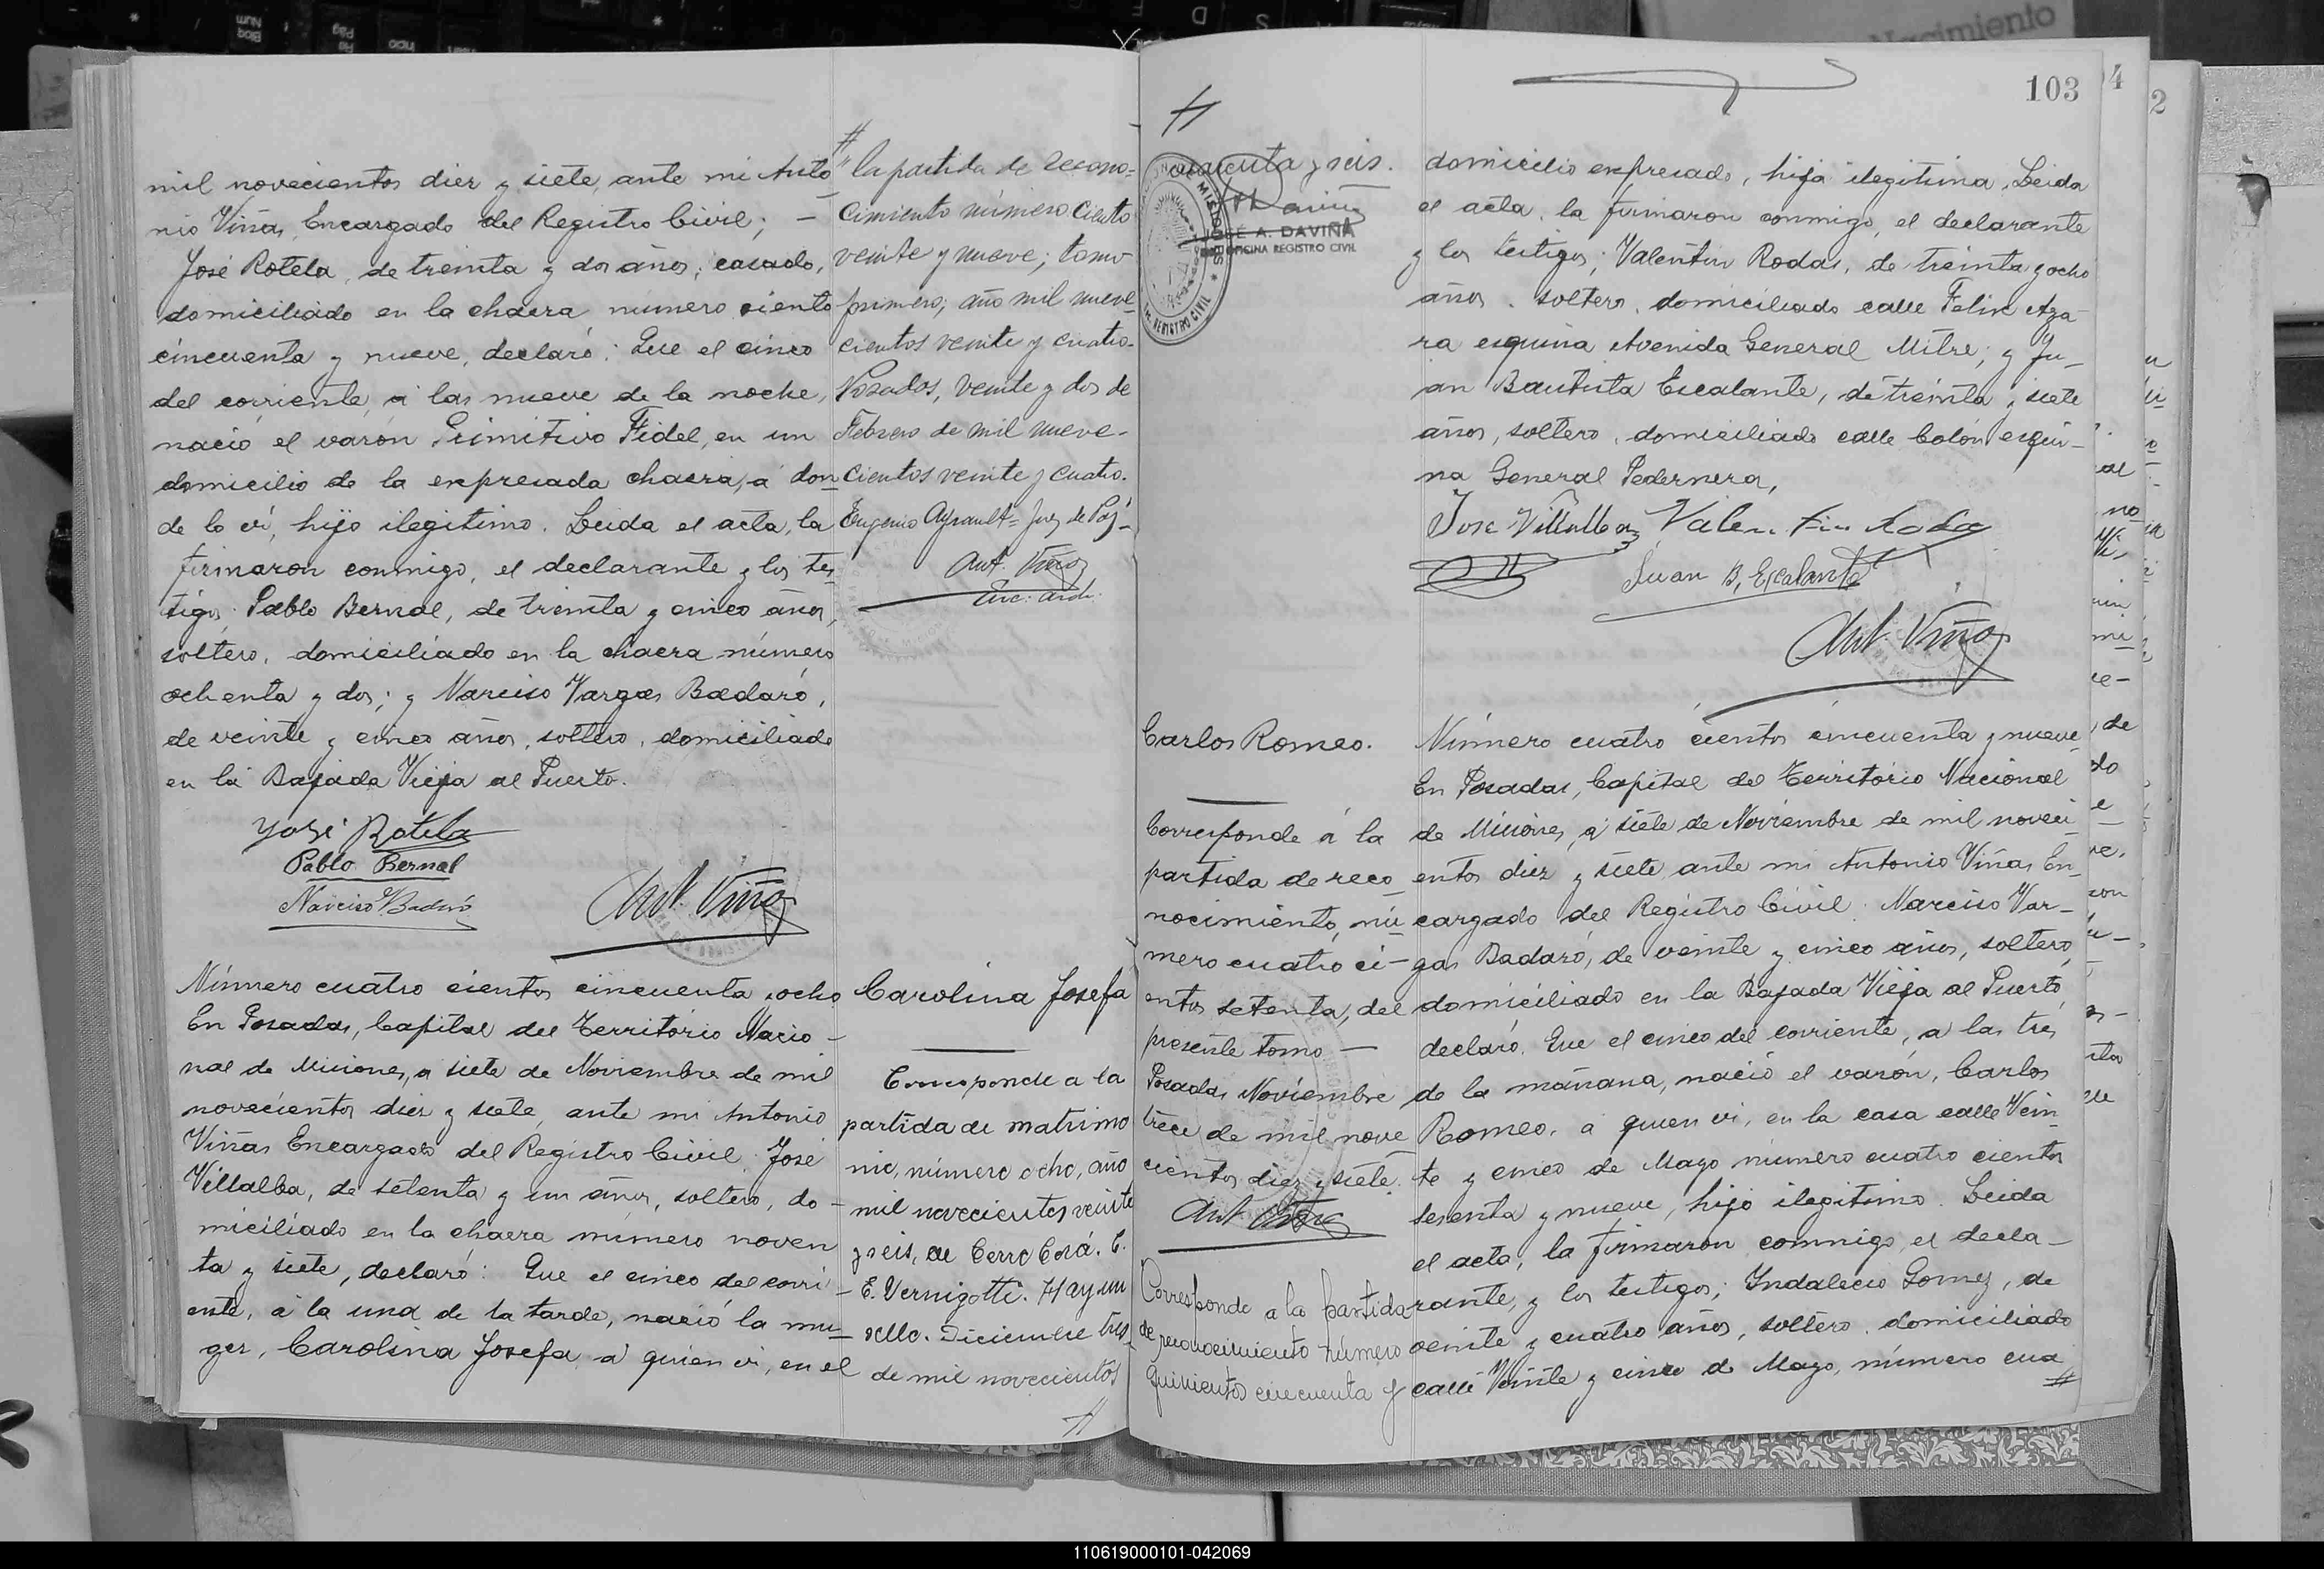 103
mil novecientos diez y siete, ante mi Anto
nio Viñas, Encargado del Registro Civil; —
José Rotela, de treinta y dos años, casado,
domiciliado en la chacra numero ciento
cincuenta y nueve, declaró: Que el cinco
del corriente, á las nueve de la noche,
nació el varón Primitivo Fidel, en un
domicilio de la expresada chacra, á don
de lo ví, hijo ilegitimo. Leida el acta, la
firmaron conmigo, el declarante y los tes
tigos; Pablo Bernal, de treinta y cinco años,
soltero, domiciliado en la chacra número
ochenta y dos; y Narciso Vargas Badaró,
de veinte y cinco años, soltero, domiciliado
en la Bajada Vieja al Puerto.
José Rotela
Pablo Bernal
Narciso V Badaró
Ant. Viñas
la partida de recono=
cimiento número ciento
veinte y nueve; tomo
primero; año mil nueve-
cientos veinte y cuatro.
Posadas, veinte y dos de
Febrero de mil nueve-
cientos veinte y cuatro.
Juez de Paz-
Ant. Viñas
Número cuatro cientos cincuenta y ocho
En Posadas, Capital del Territorio Nacio-
nal de Misiones, a siete de Noviembre de mil
novecientos diez y siete, ante mi Antonio
Viñas Encargado del Registro Civil, José
Villalba, de setenta y un años, soltero, do-
miciliado en la chacra número noven
ta y siete, declaró: Que el cinco del corri-
ente, á la una de la tarde, nació la mu-
ger, Carolina Josefa, á quien vi, en el
Carolina Josefa
Corresponde a la
partida de matrimo
nio, número ocho, año
mil novecientos veinte
y seis, de Cerro Corá. C.
E. Vernigotti. Hay un
sello. Diciembre tres
de mil novecientos
cuarenta y seis.
JOSÉ A. DAVIÑA
OFICINA REGISTRO CIVIL
domicilio expresado, hija ilegitima. Leida
el acta, la firmaron conmigo, el declarante
y los testigos; Valentin Rodas, de treinta y ocho
años, soltero, domiciliado calle Felix Aza-
ra esquina Avenida General Mitre; y Ju-
an Bautista Escalante, de treinta y siete
años, soltero, domiciliado calle Colón esqui-
na General Pedernera,
Jose Villalba Valentin Rodas
Juan B, Escalante
Ant. Viñas
Carlos Romeo.
Corresponde á la
partida de reco-
nocimiento, nú
mero cuatro ci-
entos setenta, del
presente tomo —
Posadas, Noviembre
trece de mil nove
cientos diez y siete.
Ant Viñas
Corresponde a la partida
de reconocimiento número
quinientos cincuenta y
Número cuatro cientos cincuenta y nueve
En Posadas, Capital del Territorio Nacional
de Misiones, a siete de Noviembre de mil noveci-
entos diez y siete, ante mi Antonio Viñas En-
cargado del Registro Civil, Narciso Var-
gas Badaró, de veinte y cinco años, soltero,
domiciliado en la Bajada Vieja al Puerto,
declaró. Que el cinco del corriente, a las tres
de la mañana, nació el varón, Carlos
Romeo, á quien vi, en la casa calle Vein
te y cinco de Mayo número cuatro cientos
sesenta y nueve, hijo ilegitimo. Leida
el acta, la firmaron conmigo, el decla-
rante, y los testigos; Yndalecio Gomez, de
veinte y cuatro años, soltero, domiciliado
calle Veinte y cinco de Mayo, número cua
110619000101-042069